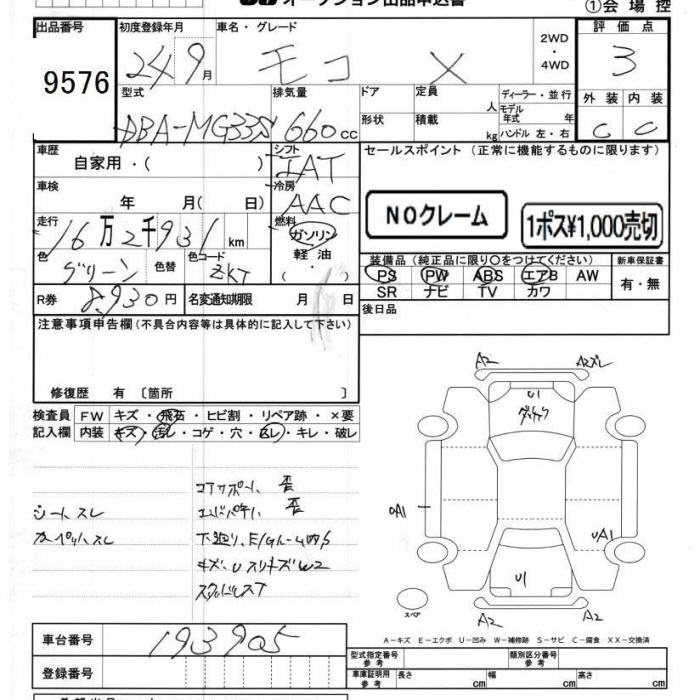 オークション出品申込書
①会場控
出品番号
9576
初度登録年月
24 9月
車名・グレード
モコ X
2WD
・
4WD
評価点
3
型式
DBA-MG33S
排気量
660cc
ドア
定員
人
ディーラー・並行
モデル
年式 年
形状
積載
kg
ハンドル 左・右
外装 内装
C C
車歴
自家用・( )
シフト
IAT
冷房
AAC
車検
年 月( 日)
走行
16万2千931km
燃料
ガソリン
軽油
・
色
グリーン
色替
色コード
ZKT
R券
8,930円
名変通知期限 月 日
セールスポイント (正常に機能するものに限ります)
NOクレーム
1ポス¥1,000売切
装備品(純正品に限り○をつけてください)
PS PW ABS エアB AW
SR ナビ TV カワ
新車保証書
有・無
後日品
注意事項申告欄(不具合内容等は具体的に記入して下さい)
修復歴 有〔箇所 〕
検査員
記入欄
FW キズ・飛石・ヒビ割・リペア跡・×要
内装 キズ・汚レ・コゲ・穴・凸レ・キレ・破レ
シートスレ
カーペットスレ
コアサポート 歪
エンドパネル 歪
下廻り、
キズ、Uスリキズ W2
スタッドレスT
A2
A2ズレ
U1
A1
UA1
U1
A2
A2
スペア
A-キズ E-エクボ U-凹み W-補修跡 S-サビ C-腐食 XX-交換済
車台番号
193905
登録番号
型式指定番号
参考
類別区分番号
参考
車庫証明用
参考
長さ cm
幅 cm
高さ cm